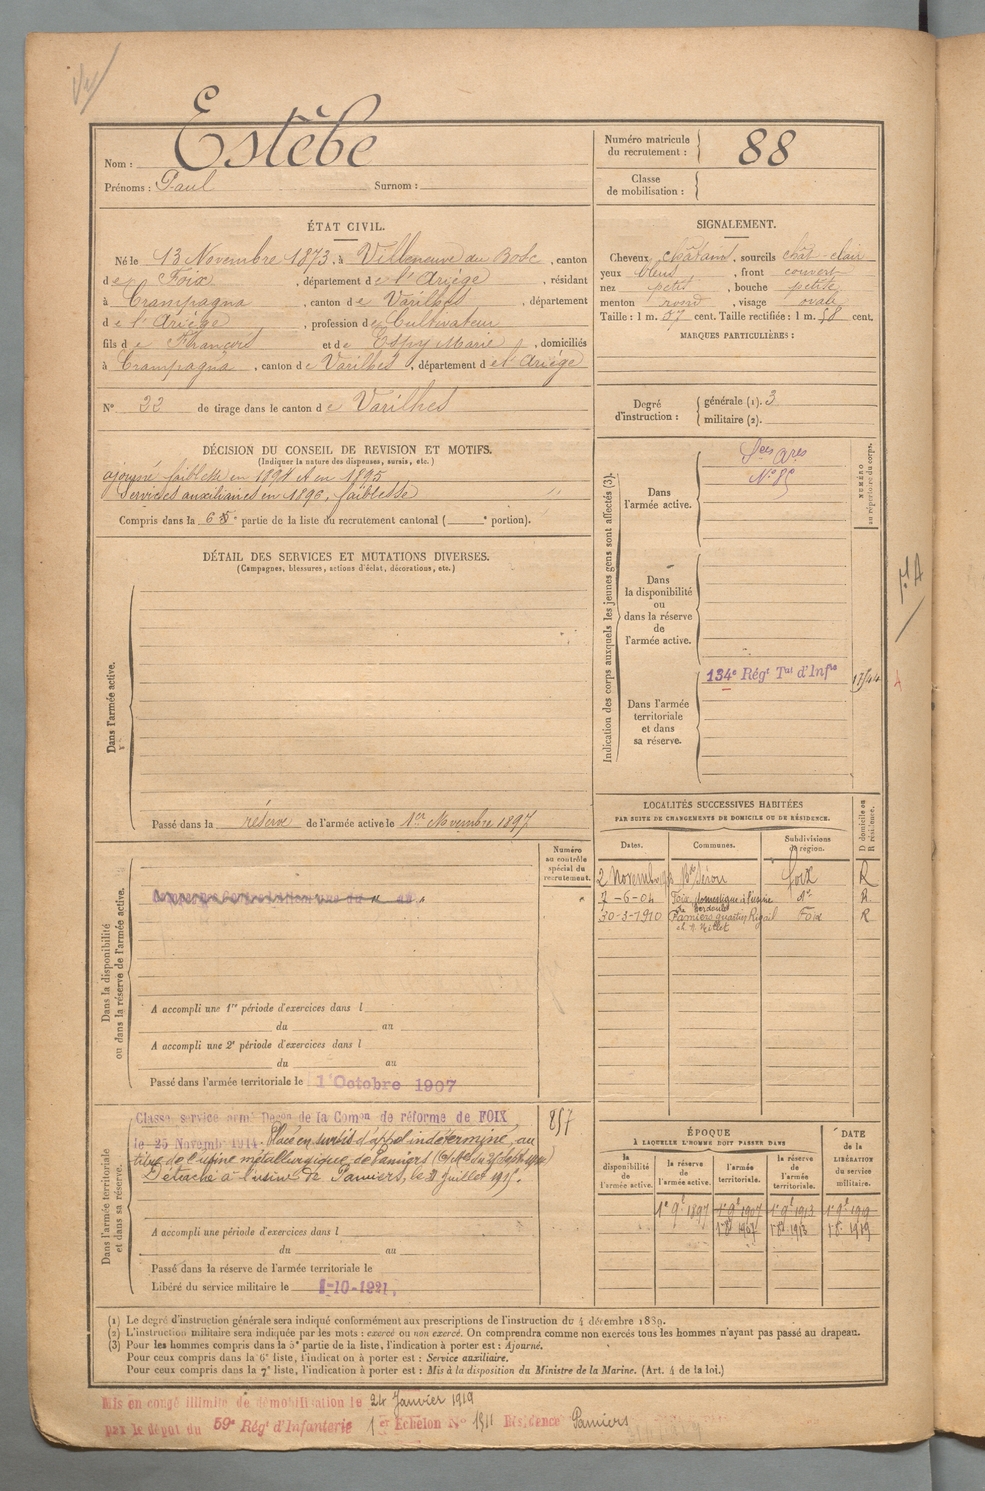 Nom : Estèbe
Prénoms : Paul Surnom :
Numéro matricule du recrutement : 88
Classe de mobilisation :
ÉTAT CIVIL.
Né le 13 Novembre 1873, à Villeneuve du Bosc, canton
de Foix, département de l'Ariège, résidant
à Crampagna, canton de Varilhes, département
de l'Ariège, profession de Cultivateur
fils de François et de Espy Marie, domiciliés
à Crampagna, canton de Varilhes, département de l'Ariège
N° 22 de tirage dans le canton de Varilhes
SIGNALEMENT.
Cheveux châtains, sourcils chât-clair
yeux bleus, front couvert
nez petit, bouche petite
menton rond, visage ovale
Taille : 1 m. 57 cent. Taille rectifiée : 1 m. 58 cent.
MARQUES PARTICULIÈRES :
Degré d'instruction : générale (1). 3
militaire (2).
DÉCISION DU CONSEIL DE REVISION ET MOTIFS.
(Indiquer la nature des dispenses, sursis, etc.)
ajourné faiblesse en 1894 et en 1895
Services auxiliaires en 1896, faiblesse
Compris dans la 6e partie de la liste du recrutement cantonal ( e portion).
DÉTAIL DES SERVICES ET MUTATIONS DIVERSES.
(Campagnes, blessures, actions d'éclat, décorations, etc.)
Dans l'armée active.
Passé dans la réserve de l'armée active le 1er Novembre 1897
Indication des corps auxquels les jeunes gens sont affectés (3).
NUMÉRO au répertoire du corps.
Dans l'armée active.
Sces Ares
N° 89
Dans la disponibilité ou dans la réserve de l'armée active.
Dans l'armée territoriale et dans sa réserve.
134e Régt Tal d'Infie
LOCALITÉS SUCCESSIVES HABITÉES
PAR SUITE DE CHANGEMENTS DE DOMICILE OU DE RÉSIDENCE.
Dates. Communes. Subdivisions de région. D domicile ou R résidence.
Foix R
7-6-04 Foix, domestique à l'usine de Berdoulet do R
30-3-1910 Pamiers quartier Rigail Foix R
Dans la disponibilité ou dans la réserve de l'armée active.
Numéro au contrôle spécial du recrutement.
A accompli une 1re période d'exercices dans l
du au
A accompli une 2e période d'exercices dans l
du au
Passé dans l'armée territoriale le 1 Octobre 1907
Dans l'armée territoriale et dans sa réserve.
Classe service armé Decon de la Comon de réforme de FOIX
le 25 Novemb 1914. Placé en sursis d'appel indéterminé, au
titre de l'usine métallurgique de Pamiers
Détaché à l'usine de Pamiers, le 3 juillet 1915.
857
A accompli une période d'exercices dans l
du au
Passé dans la réserve de l'armée territoriale le
Libéré du service militaire le 1-10-1921.
ÉPOQUE
À LAQUELLE L'HOMME DOIT PASSER DANS
la disponibilité de l'armée active. la réserve de l'armée active. l'armée territoriale. la réserve de l'armée territoriale.
DATE de la LIBÉRATION du service militaire.
1897 1907 1913 1919
1907 1913 1919
(1) Le degré d'instruction générale sera indiqué conformément aux prescriptions de l'instruction du 4 décembre 1889.
(2) L'instruction militaire sera indiquée par les mots : exercé ou non exercé. On comprendra comme non exercés tous les hommes n'ayant pas passé au drapeau.
(3) Pour les hommes compris dans la 5e partie de la liste, l'indication à porter est : Ajourné.
Pour ceux compris dans la 6e liste, l'indication à porter est : Service auxiliaire.
Pour ceux compris dans la 7e liste, l'indication à porter est : Mis à la disposition du Ministre de la Marine. (Art. 4 de la loi.)
Mis en congé illimité de démobilisation le 24 Janvier 1919
par le dépôt du 59e Régt d'Infanterie 1er Echelon No 1511 Résidence Pamiers